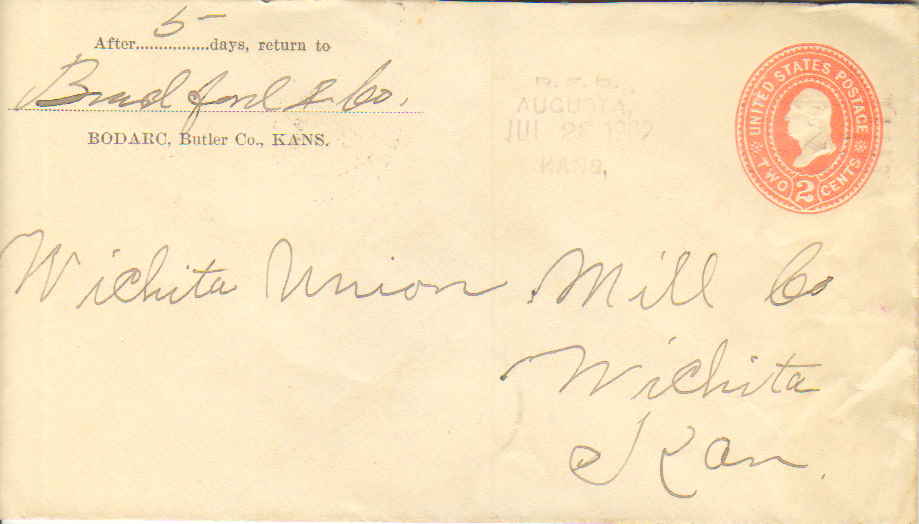 After 5 days, return to
Bradford & Co.
BODARC, Butler Co., KANS.
R.F.D.
AUGUSTA,
JUL 26
KANS,
UNITED STATES POSTAGE
TWO 2 CENTS
Wichita Union Mill Co
Wichita
Kan.